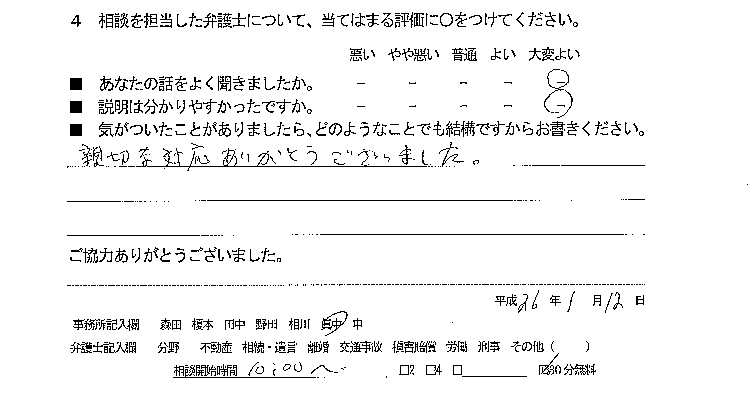 4 相談を担当した弁護士について、当てはまる評価に○をつけてください。
悪い やや悪い 普通 よい 大変よい
■ あなたの話をよく聞きましたか。 - - - - -
■ 説明は分かりやすかったですか。 - - - - -
■ 気がついたことがありましたら、どのようなことでも結構ですからお書きください。
親切な対応ありがとうございました。
ご協力ありがとうございました。
平成26年1月12日
事務所記入欄 森田 榎本 田中 野田 相川 眞中 中
弁護士記入欄 分野 不動産 相続・遺言 離婚 交通事故 損害賠償 労働 刑事 その他( )
相談開始時間 10:00~ □2 □4 □ 30分無料